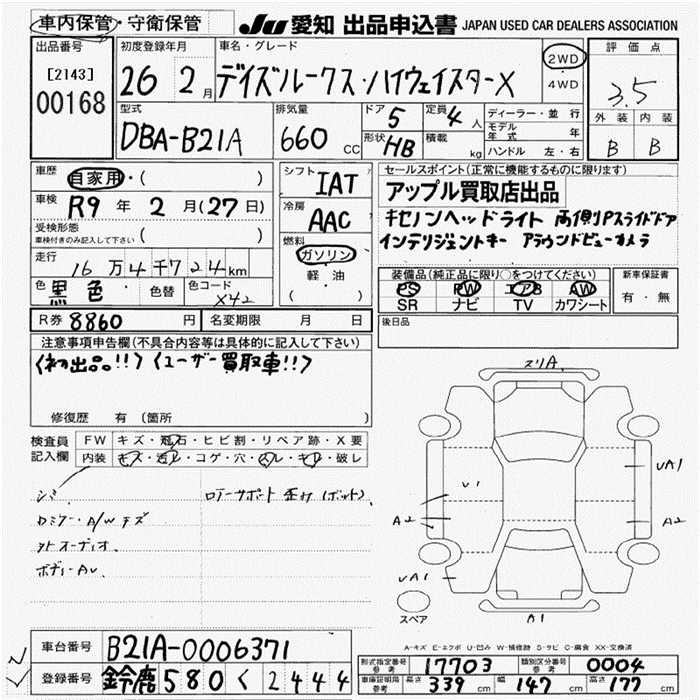 車内保管・守衛保管 JU 愛知 出品申込書 JAPAN USED CAR DEALERS ASSOCIATION
出品番号 [2143] 00168
初度登録年月 26 2月
車名・グレード デイズルークス・ハイウェイスターX
2WD・4WD
評価点 3.5
外装 B 内装 B
型式 DBA-B21A
排気量 660 CC
ドア 5 定員 4人
形状 HB 積載 kg
ディーラー・並行
モデル年式 年
ハンドル 左・右
車歴 自家用・( )
車検 R9年 2月(27日)
受検形態 ( )
車検付きのみ記入して下さい
走行 16万4千724km
色 黒色 色替 色コード X42
シフト IAT
冷房 AAC
燃料 ガソリン 軽油
( )
セールスポイント(正常に機能するものに限ります)
アップル買取店出品
キセノンヘッドライト 両側Pスライドドア
インテリジェントキー アラウンドビューカメラ
装備品(純正品に限り○をつけてください)
PS PW エアB AW
SR ナビ TV カワシート
新車保証書
有・無
R券 8860円 名変期限 月 日
後日品
注意事項申告欄(不具合内容等は具体的に記入して下さい)
〈初出品!!〉〈ユーザー買取車!!〉
修復歴 有(箇所 )
検査員記入欄
FW キズ・飛石・ヒビ割・リペア跡・X要
内装 キズ・汚レ・コゲ・穴・スレ・キレ・破レ
シミ
ロアーサポート 歪み(ボット)
A/Wキズ
外オーディオ
ボディーAU
スリA
UA1
V1
A2
A2
UA1
A1
スペア
A-キズ E-エクボ U-凹み W-補修跡 S-サビ C-腐食 XX-交換済
車台番号 B21A-0006371
登録番号 鈴鹿 580 く 2444
型式指定番号 参考 17703 類別区分番号 参考 0004
車庫証明用 参考 長さ 339cm 幅 147cm 高さ 177cm